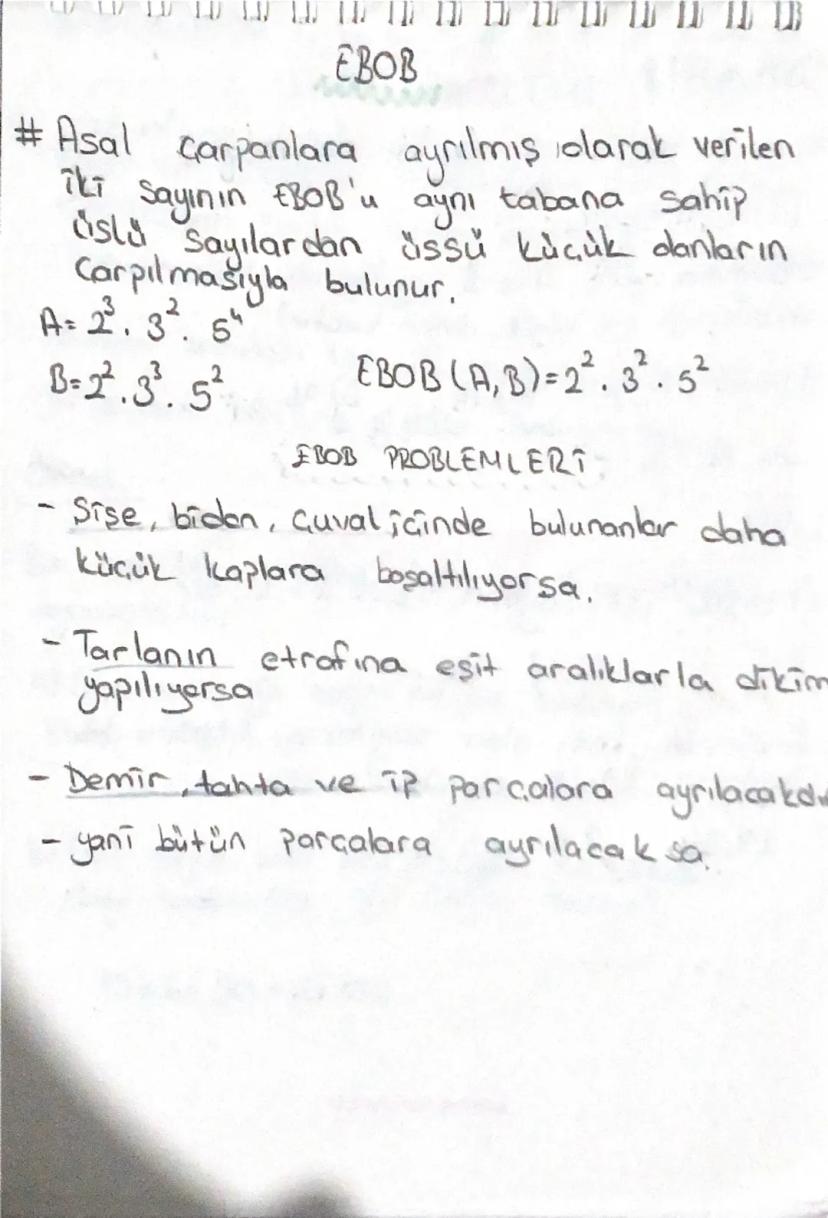 EBOB
# Asal çarpanlara ayrılmış olarak verilen
iki sayının EBOB'u aynı tabana sahip
üslü sayılardan üssü küçük olanların
çarpılmasıyla bulunur.
A= 2³. 3². 5⁴
B= 2². 3³. 5² EBOB (A,B) = 2². 3². 5²
EBOB PROBLEMLERİ
- Şişe, bidon, çuval içinde bulunanlar daha
küçük kaplara boşaltılıyorsa.
- Tarlanın etrafına eşit aralıklarla dikim
yapılıyorsa
- Demir, tahta ve ip parçalara
- yani bütün parçalara ayrılacaksa.